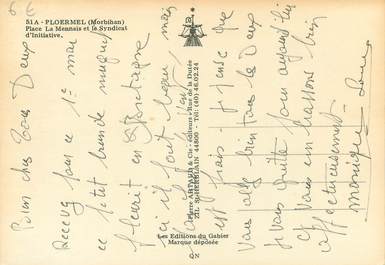 6€
51 A - PLOERMEL (Morbihan)
Place La Mennais et le Syndicat
d'Initiative.
Pierre ARTAUD & Cie - éditeurs - Rue de la Dutée
ZIL ST-HERBLAIN 44800 - Tél: (40) 46.02.24
Les Editions du Gabier
Marque déposée
Bien chers tous Deux
Recevez pour ce 1er mai
ce petit brin de muguet
fleurit en Bretagne
ici il fait beau mais
est frais - je pense que
vous allez bien tous les Deux
je vous quitte pour aujourd'hui
et vous embrassons bien
affectueusement.
Monique